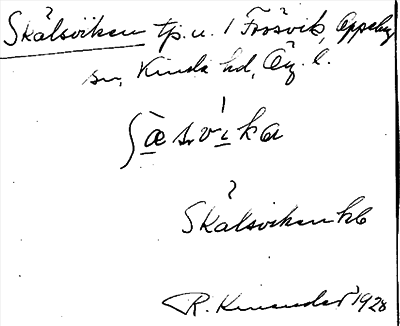 Skålsviken tp. u. 1 Forsvik, Oppeby
sn, Kinda hd, Ög. l.
ʃæ̀sv̩ika
?
Skålsviken kb
R. Kinander 1928